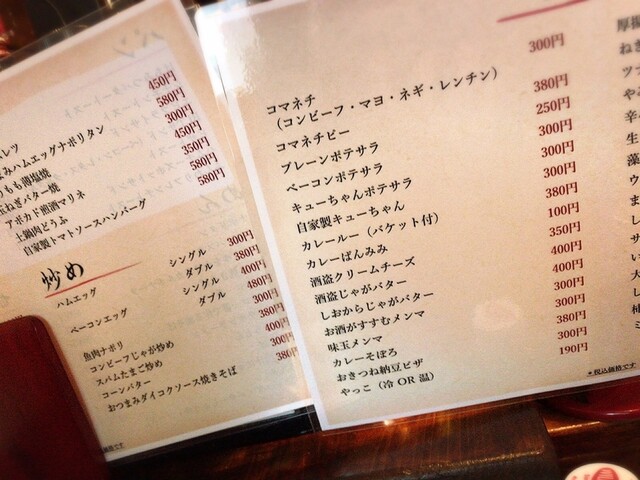 レツ
450円
みハムエッグナポリタン 580円
もも薄塩焼 300円
玉ねぎバター焼 450円
アボカド煎酒マリネ 350円
土鍋肉どうふ 580円
自家製トマトソースハンバーグ 580円
炒め
ハムエッグ シングル 300円
ダブル 380円
ベーコンエッグ シングル 400円
ダブル 480円
魚肉ナポリ 300円
コンビーフじゃが炒め 380円
スパムたまご炒め 400円
コーンバター 300円
おつまみダイコクソース焼きそば 380円
コマネチ 300円
（コンビーフ・マヨ・ネギ・レンチン）
コマネチビー 380円
プレーンポテサラ 250円
ベーコンポテサラ 300円
キューちゃんポテサラ 300円
自家製キューちゃん 300円
カレールー（バケット付） 380円
カレーぱんみみ 100円
酒盗クリームチーズ 350円
酒盗じゃがバター 400円
しおからじゃがバター 400円
お酒がすすむメンマ 300円
味玉メンマ 300円
カレーそぼろ 380円
おきつね納豆ピザ 300円
やっこ（冷 OR 温） 190円
＊税込価格です